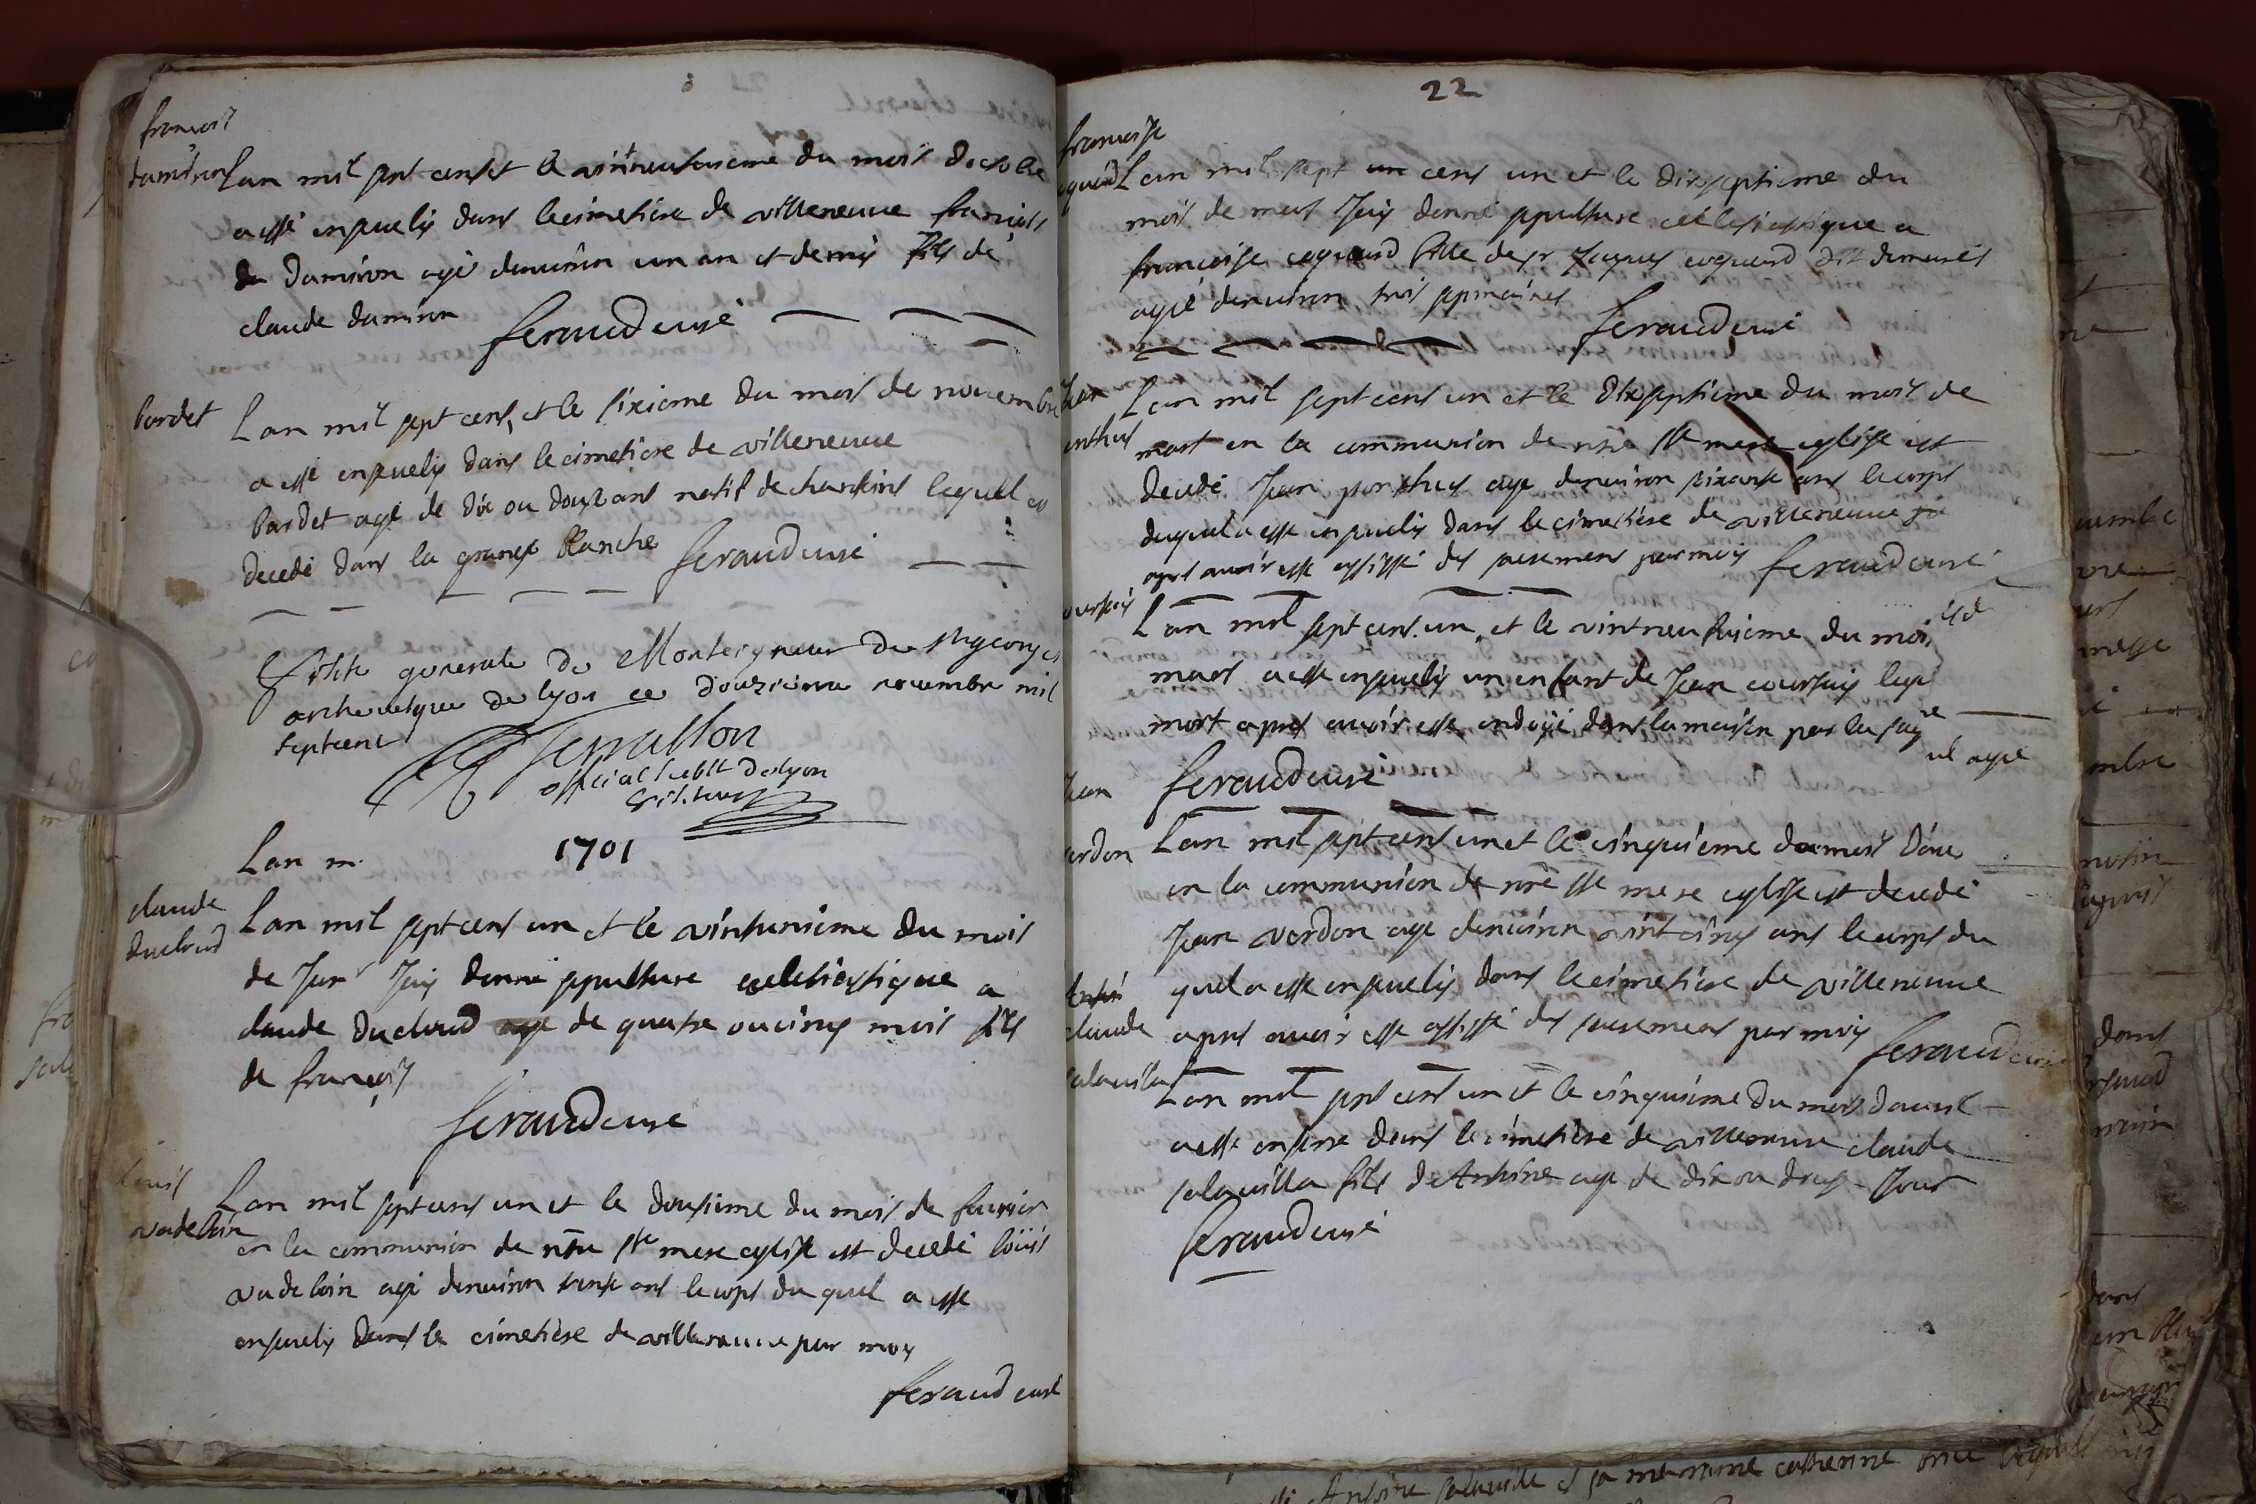 francois
damiron
Lan mil sept cens et le vintneufvieme du mois doctobre
a esté ensuelis dans le cimetiere de villeneuve francois
du damiron agé denviron un an et demis fils de
claude damiron
feraud curé
bardet
Lan mil sept cens, et le sixieme du mois de novembre
a esté ensuelis dans le cimetiere de villeneuve
bardet agé de dix ou douze ans natif de lequel
decedé dans la grange blanche feraud curé
Visite generale de Monseigneur de St george
archevesque de lyon ce douzieme novembre mil
septcent
Terrasson
official substt de lyon
Visiteur
Lan m.
1701
claude
ducloud
Lan mil sept cens un et le vintunieme du mois
de Janr Jay donné sepulture ecclesiastique a
claude ducloud age de quatre ou cinq mois fils
de francois
feraud curé
louis
vadeboin
Lan mil sept cens un et le dousieme du mois de fevrier
en la communion de nre ste mere eglise est decedé loüis
vadeboin agé denviron trente ans le corps du quel a esté
ensuelis dans le cimetiere de villeneuve par moy
feraud curé
22
francoise
Lan mil sept cens un et le dixseptieme du
mois de mars Jay donné sepulture ecclesiastique a
francoise coquard fille de sr Jaques coquard dit
agée denviron trois semaines
feraud curé
Jean
Lan mil sept cens un et le dixseptieme du mois de
mars en la communion de nre ste mere eglise est
decedé Jean ponthus age denviron soixante ans le corps
duquel a esté ensuelis dans le cimetiere de villeneuve
apres avoir esté assisté des sacremens par moy feraud curé
coursuy
Lan mil sept cens un, et le vintneufvieme du mois de
mars a esté ensuelis un enfant de Jean coursuy
mort apres avoir esté ondoyé dans la maison par la sage
feraud curé
Jean
verdon
Lan mil sept cens un et le cinquieme du mois
en la communion de nre ste mere eglise est decedé
Jean verdon age denviron vint cinq ans le corps du
quel a esté ensuelis dans le cimetiere de villeneuve
apres avoir esté assisté des sacremens par moy feraud curé
claude
salavilla
Lan mil sept cens un et le cinquieme du mois davril
a esté enterré dans le cimetiere de villeneuve claude
salavilla fils dAnthoine age de dix ou douze Jours
feraud curé